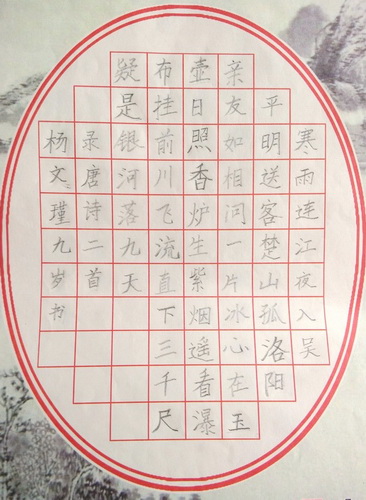 寒雨连江夜入吴
平明送客楚山孤洛阳
亲友如相问一片冰心在玉
壶日照香炉生紫烟遥看瀑
布挂前川飞流直下三千尺
疑是银河落九天
录唐诗二首
杨文瑾九岁书